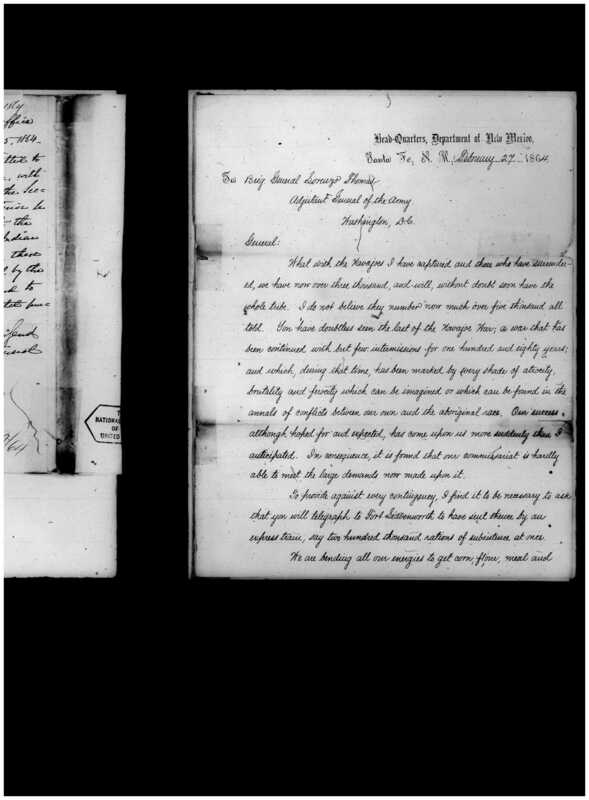 office
5. 1864.
with
the Sec-
the
Indian
these
by the
to
NATIONAL
OF
UNITED
/64
Head-Quarters, Department of New Mexico,
Santa Fe, N. M., February 27 1864.
To Brig General Lorenzo Thomas
Adjutant General of the Army
Washington, D.C.
General:
What with the Navajoes I have captured and those who have surrender-
ed, we have now over three thousand, and will, without doubt soon have the
whole tribe. I do not believe they number now much over five thousand all
told. You have doubtless seen the last of the Navajoe War; a war that has
been continued with but few intermissions for one hundred and eighty years;
and which, during that time, has been marked by every shade of atrocity,
brutality and ferocity which can be imagined or which can be found in the
annals of conflicts between our own and the aboriginal race. Our success
although hoped for and expected, has come upon us more suddenly than I
anticipated. In consequence, it is found that our commissariat is hardly
able to meet the large demands now made upon it.
To provide against every contingency, I find it to be necessary to ask
that you will telegraph to Fort Leavenworth to have sent thence by an
express train, say two hundred thousand rations of subsistence at once.
We are bending all our energies to get corn, flour, meal and